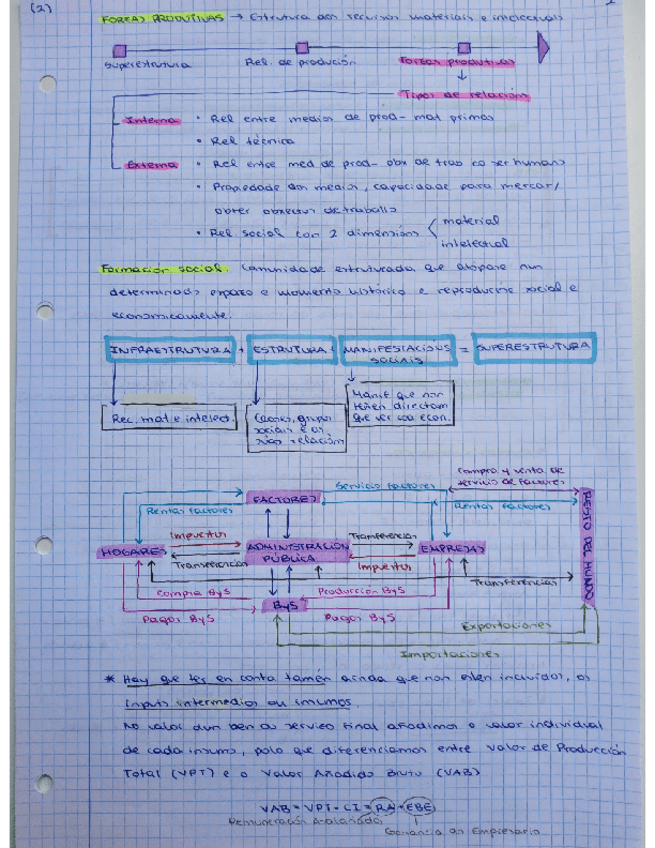 (2)
FORZAS PRODUTIVAS → Estrutura dos recursos materiais e intelectuais
Superestrutura Rel. de produción Forzas produtivas
Tipos de relación
Interna • Rel entre medios de prod - mat primas
• Rel técnica
Externa • Rel entre med de prod - obx de trab co ser humano
• Propiedade dos medios, capacidade para mercar/
obter obxectos de traballo
• Rel social con 2 dimensións material
intelectual
Formación social. Comunidade estruturada que atópase nun
determinado espazo e momento histórico e reprodúcese social e
economicamente.
INFRAESTRUTURA + ESTRUTURA + MANIFESTACIÓNS SOCIAIS = SUPERESTRUTURA
Rec. mat e intelect.
Clases, grupos
sociais e as
súas relación
Manif que non
teñen directam
que ver coa econ.
Compra y venta de
servicio de factores
FACTORES Servicio factores
Rentas factores Rentas factores
Impuestos Transferencias
HOGARES ADMINISTRACIÓN PÚBLICA EMPRESAS
Transferencias Impuestos
RESTO DEL MUNDO
Transferencias
Compra ByS Producción ByS
ByS
Pagos ByS Pagos ByS
Exportaciones
Importaciones
* Hay que ter en conta tamén aínda que non estén incluídos, os
inputs intermedios ou insumos.
No valor dun ben ou servizo final añadimos o valor individual
de cada insumo, polo que diferenciamos entre Valor de Producción
Total (VPT) e o Valor Añadido Bruto (VAB)
VAB = VPT - CI = RA + EBE
Remuneración Asalariados
Ganancia do Empresario